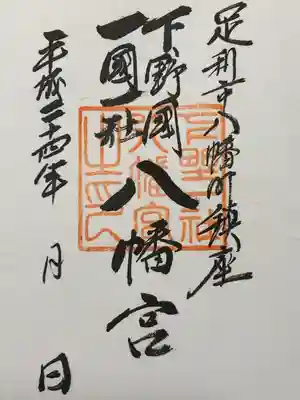 足利市八幡町鎮座
下野國
一國一社
八幡宮
平成二十四年 月 日